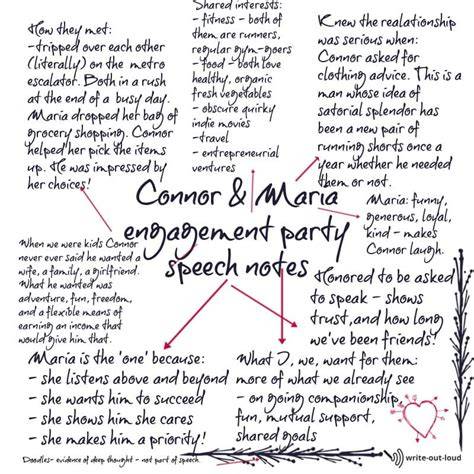 How they met:
-tripped over each other
(literally) on the metro
escalator. Both in a rush
at the end of a busy day.
Maria dropped her bag of
grocery shopping. Connor
helped her pick the items
up. He was impressed by
her choices!
Shared interests:
- fitness - both of
them are runners,
regular gym-goers
- food - both love
healthy, organic
fresh vegetables
- obscure quirky
indie movies
-travel
- entrepreneurial
ventures
Knew the realationship
was serious when:
Connor asked for
clothing advice. This is a
man whose idea of
satorial splendor has
been a new pair of
running shorts once a
year whether he needed
them or not.
Connor & Maria
engagement party
speech notes
Maria: funny,
generous, loyal,
kind - makes
Connor laugh.
When we were kids Connor
never ever said he wanted a
wife, a family, a girlfriend.
What he wanted was
adventure, fun, freedom,
and a flexible means of
earning an income that
would give him that.
Honored to be asked
to speak - shows
trust, and how long
we've been friends!
Maria is the 'one' because:
- she listens above and beyond
- she wants him to succeed
- she shows him she cares
- she makes him a priority!
What I, we, want for them:
more of what we already see
- on going companionship,
fun, mutual support,
shared goals
Doodles- evidence of deep thought - not part of speech.
write-out-loud